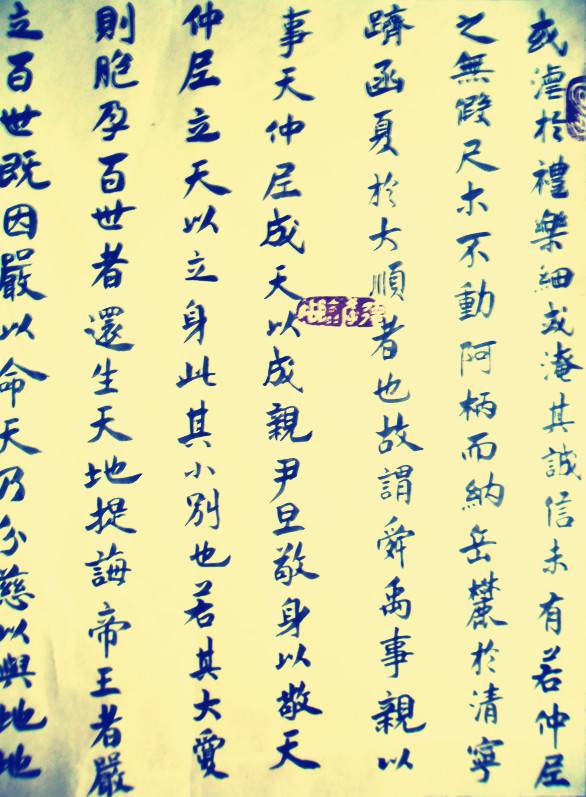 或湮於禮樂細或淹其誠信未有若仲尼
之無假尺木不動阿柄而納岳麓於清寧
躋函夏於大順者也故謂舜禹事親以
事天仲尼成天以成親尹旦敬身以敬天
仲尼立天以立身此其小別也若其大愛
則胞孕百世者還生天地提誨帝王者嚴
立百世既因嚴以命天乃分慈以與地地